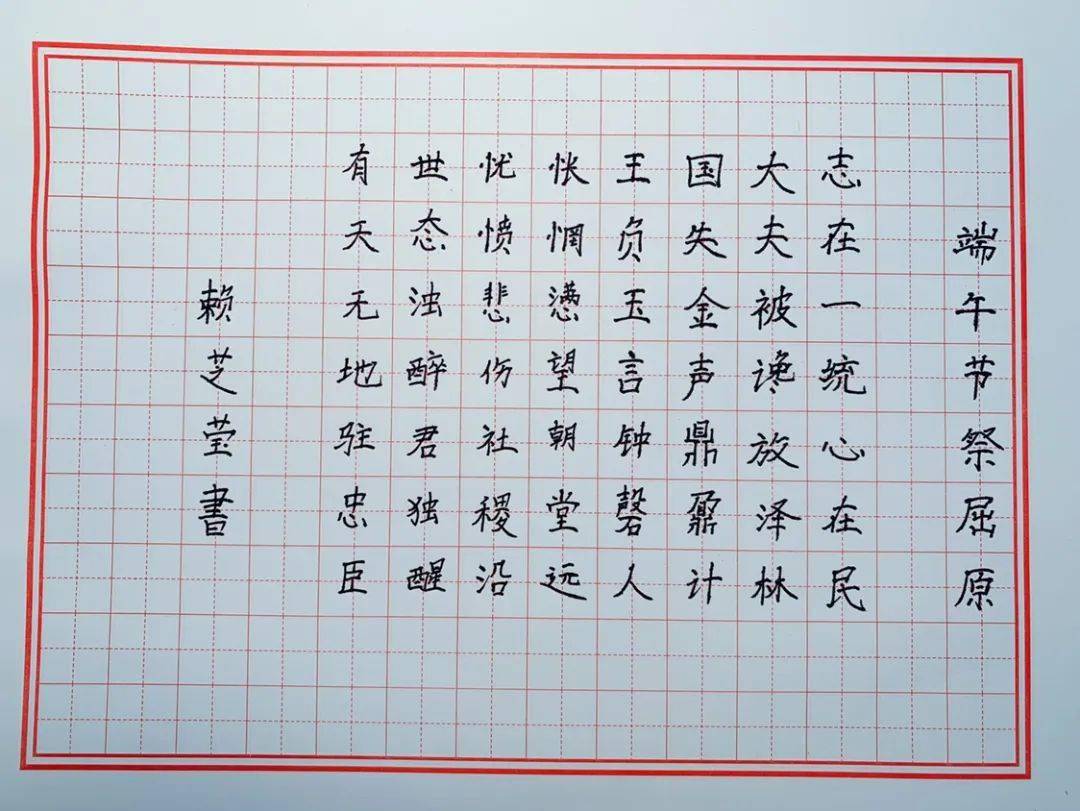 端午节祭屈原
志在一统心在民
大夫被谗放泽林
国失金声鼎鼐计
王负玉言钟磬人
怅惘懑望朝堂远
忧愤悲伤社稷沿
世态浊醉君独醒
有天无地驻忠臣
赖芝莹書